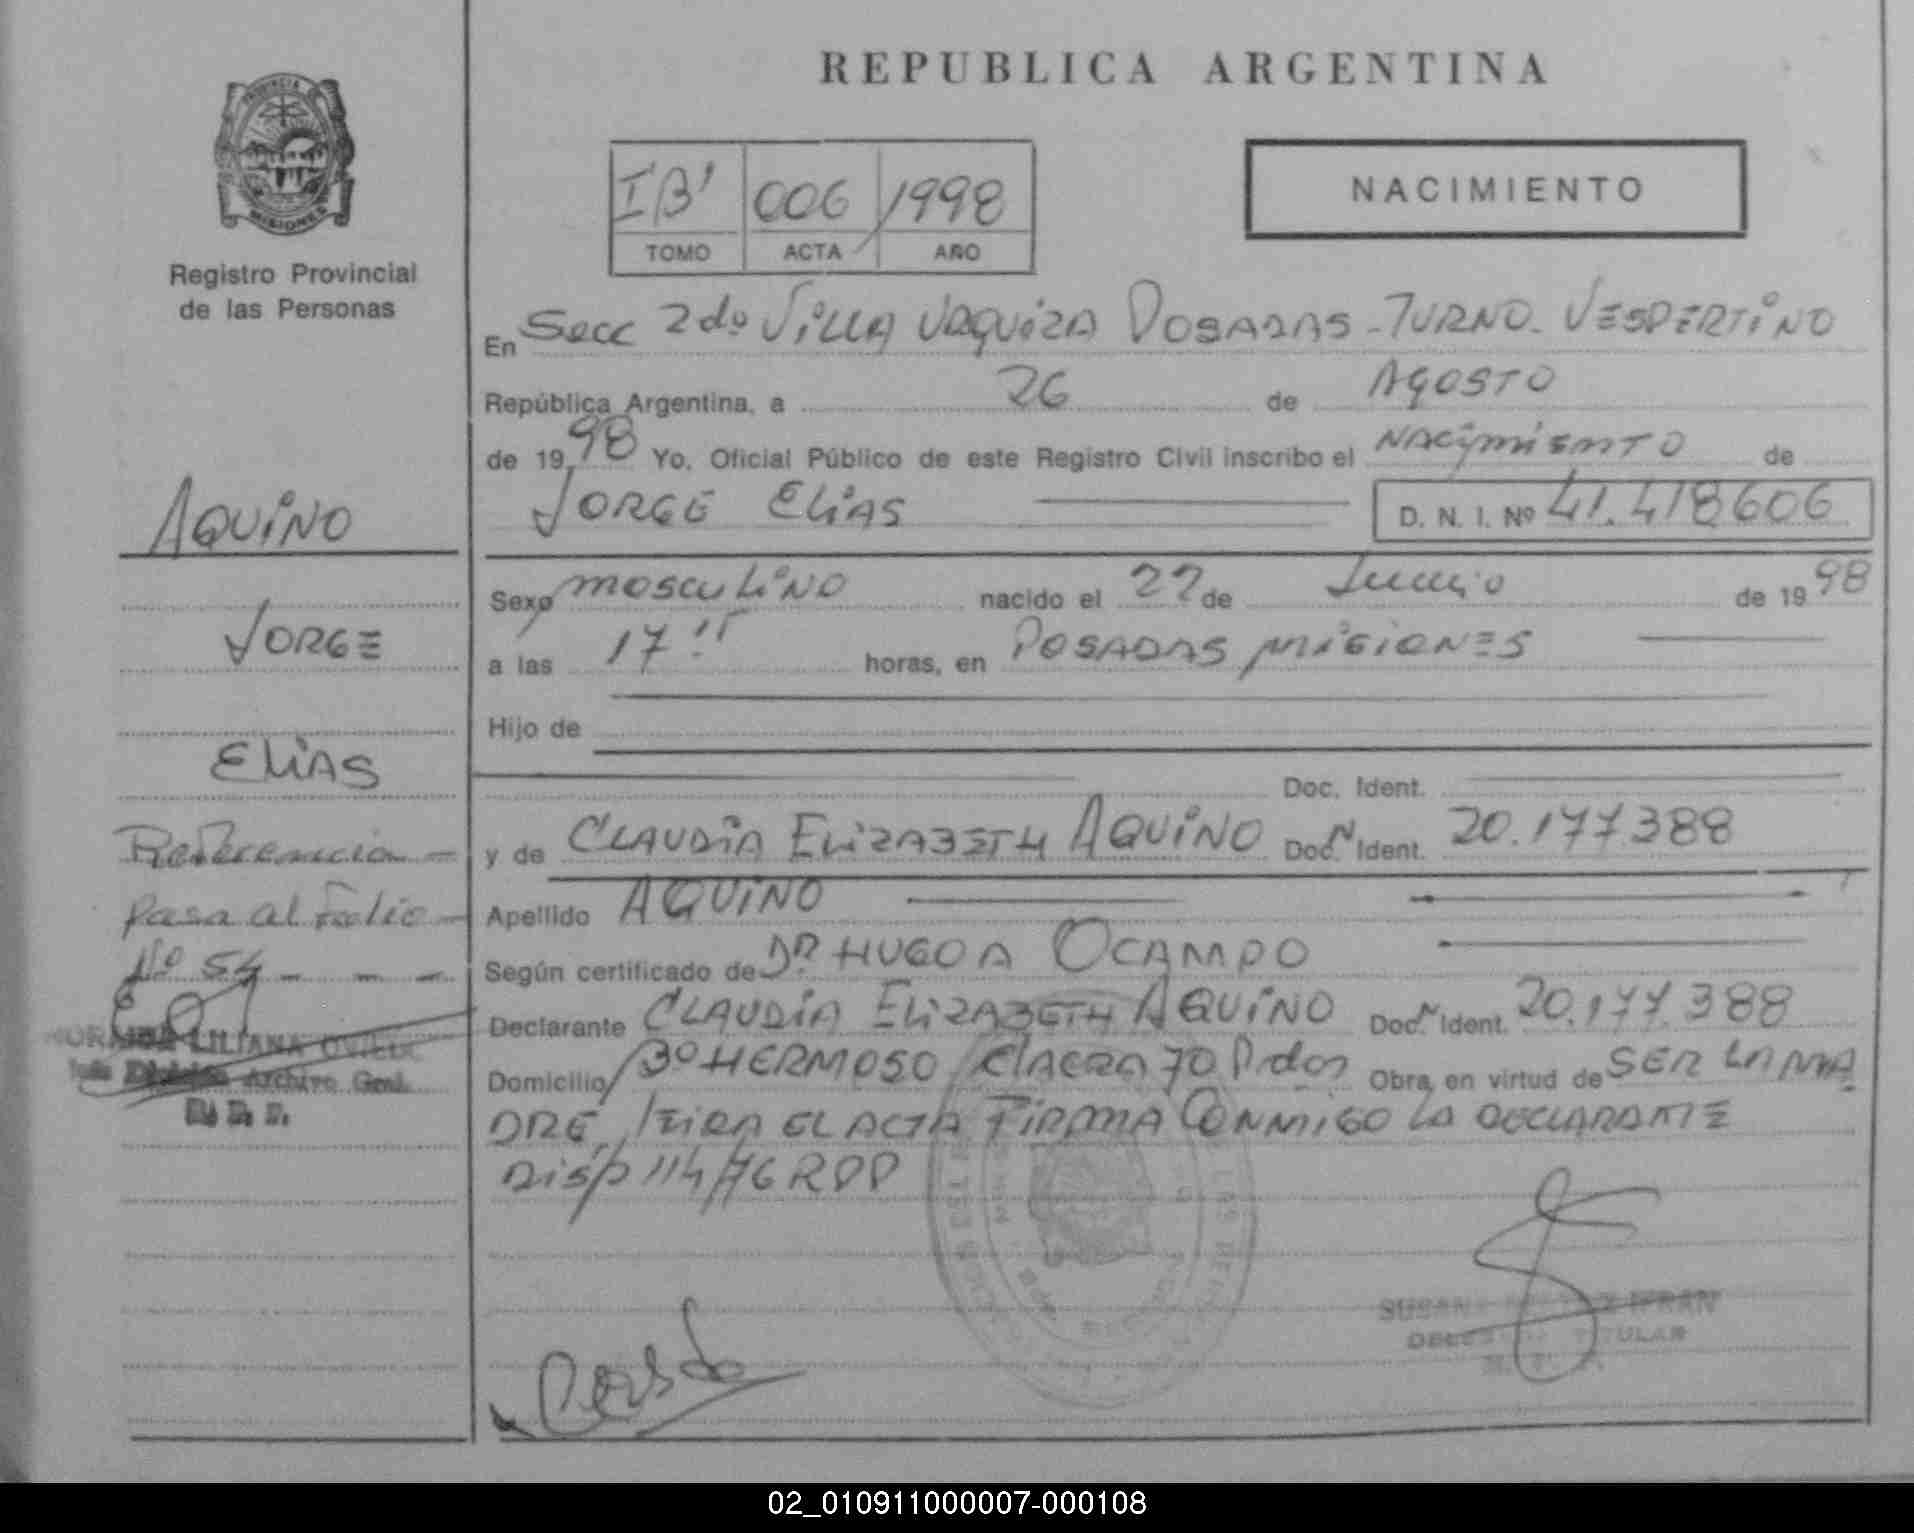 REPUBLICA ARGENTINA
PROVINCIA DE
MISIONES
Registro Provincial
de las Personas
IB' 006 1998
TOMO ACTA AÑO
NACIMIENTO
En Secc 2do Villa Urquiza Posadas - Turno Vespertino
República Argentina, a 26 de Agosto
de 1998 Yo, Oficial Público de este Registro Civil inscribo el Nacimiento de
Jorge Elias D. N. I. Nº 41.418606
AQUINO
Sexo masculino nacido el de Junio de 1998
JORGE
a las 17 horas, en Posadas Misiones
Hijo de
ELIAS
Doc. Ident.
y de Claudia Elizabeth Aquino Doc. Ident. 20.177.388
Referencia -
Apellido Aquino
Pasa al Folio -
Según certificado de Dr Hugo A Ocampo
Nº 54 - - -
Declarante Claudia Elizabeth Aquino Doc. Ident. 20.177.388
LILIANA
Domicilio Bº Hermoso Chacra 70 Pdas Obra en virtud de ser la ma
División Archivo Gral.
dre, el acta firma conmigo la declarante
Disp 114/76 RPP
SUSANA IFRAN
TITULAR
02_010911000007-000108